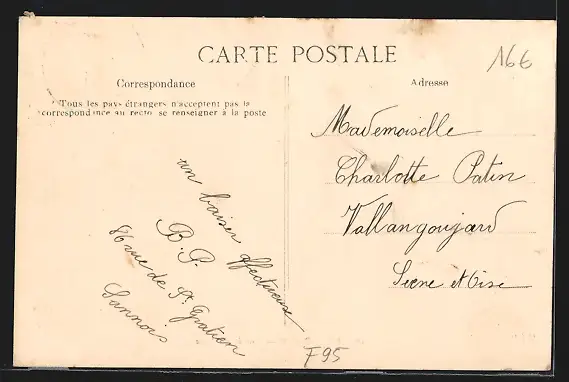 CARTE POSTALE
16€
Correspondance
Adresse
Tous les pays étrangers n'acceptent pas la
correspondance au recto se renseigner à la poste
Mademoiselle
Charlotte Patin
Vallangoujard
Seine et Oise
un baiser affectueux
B. P.
86 rue de St. Gratien
Sannois
F95